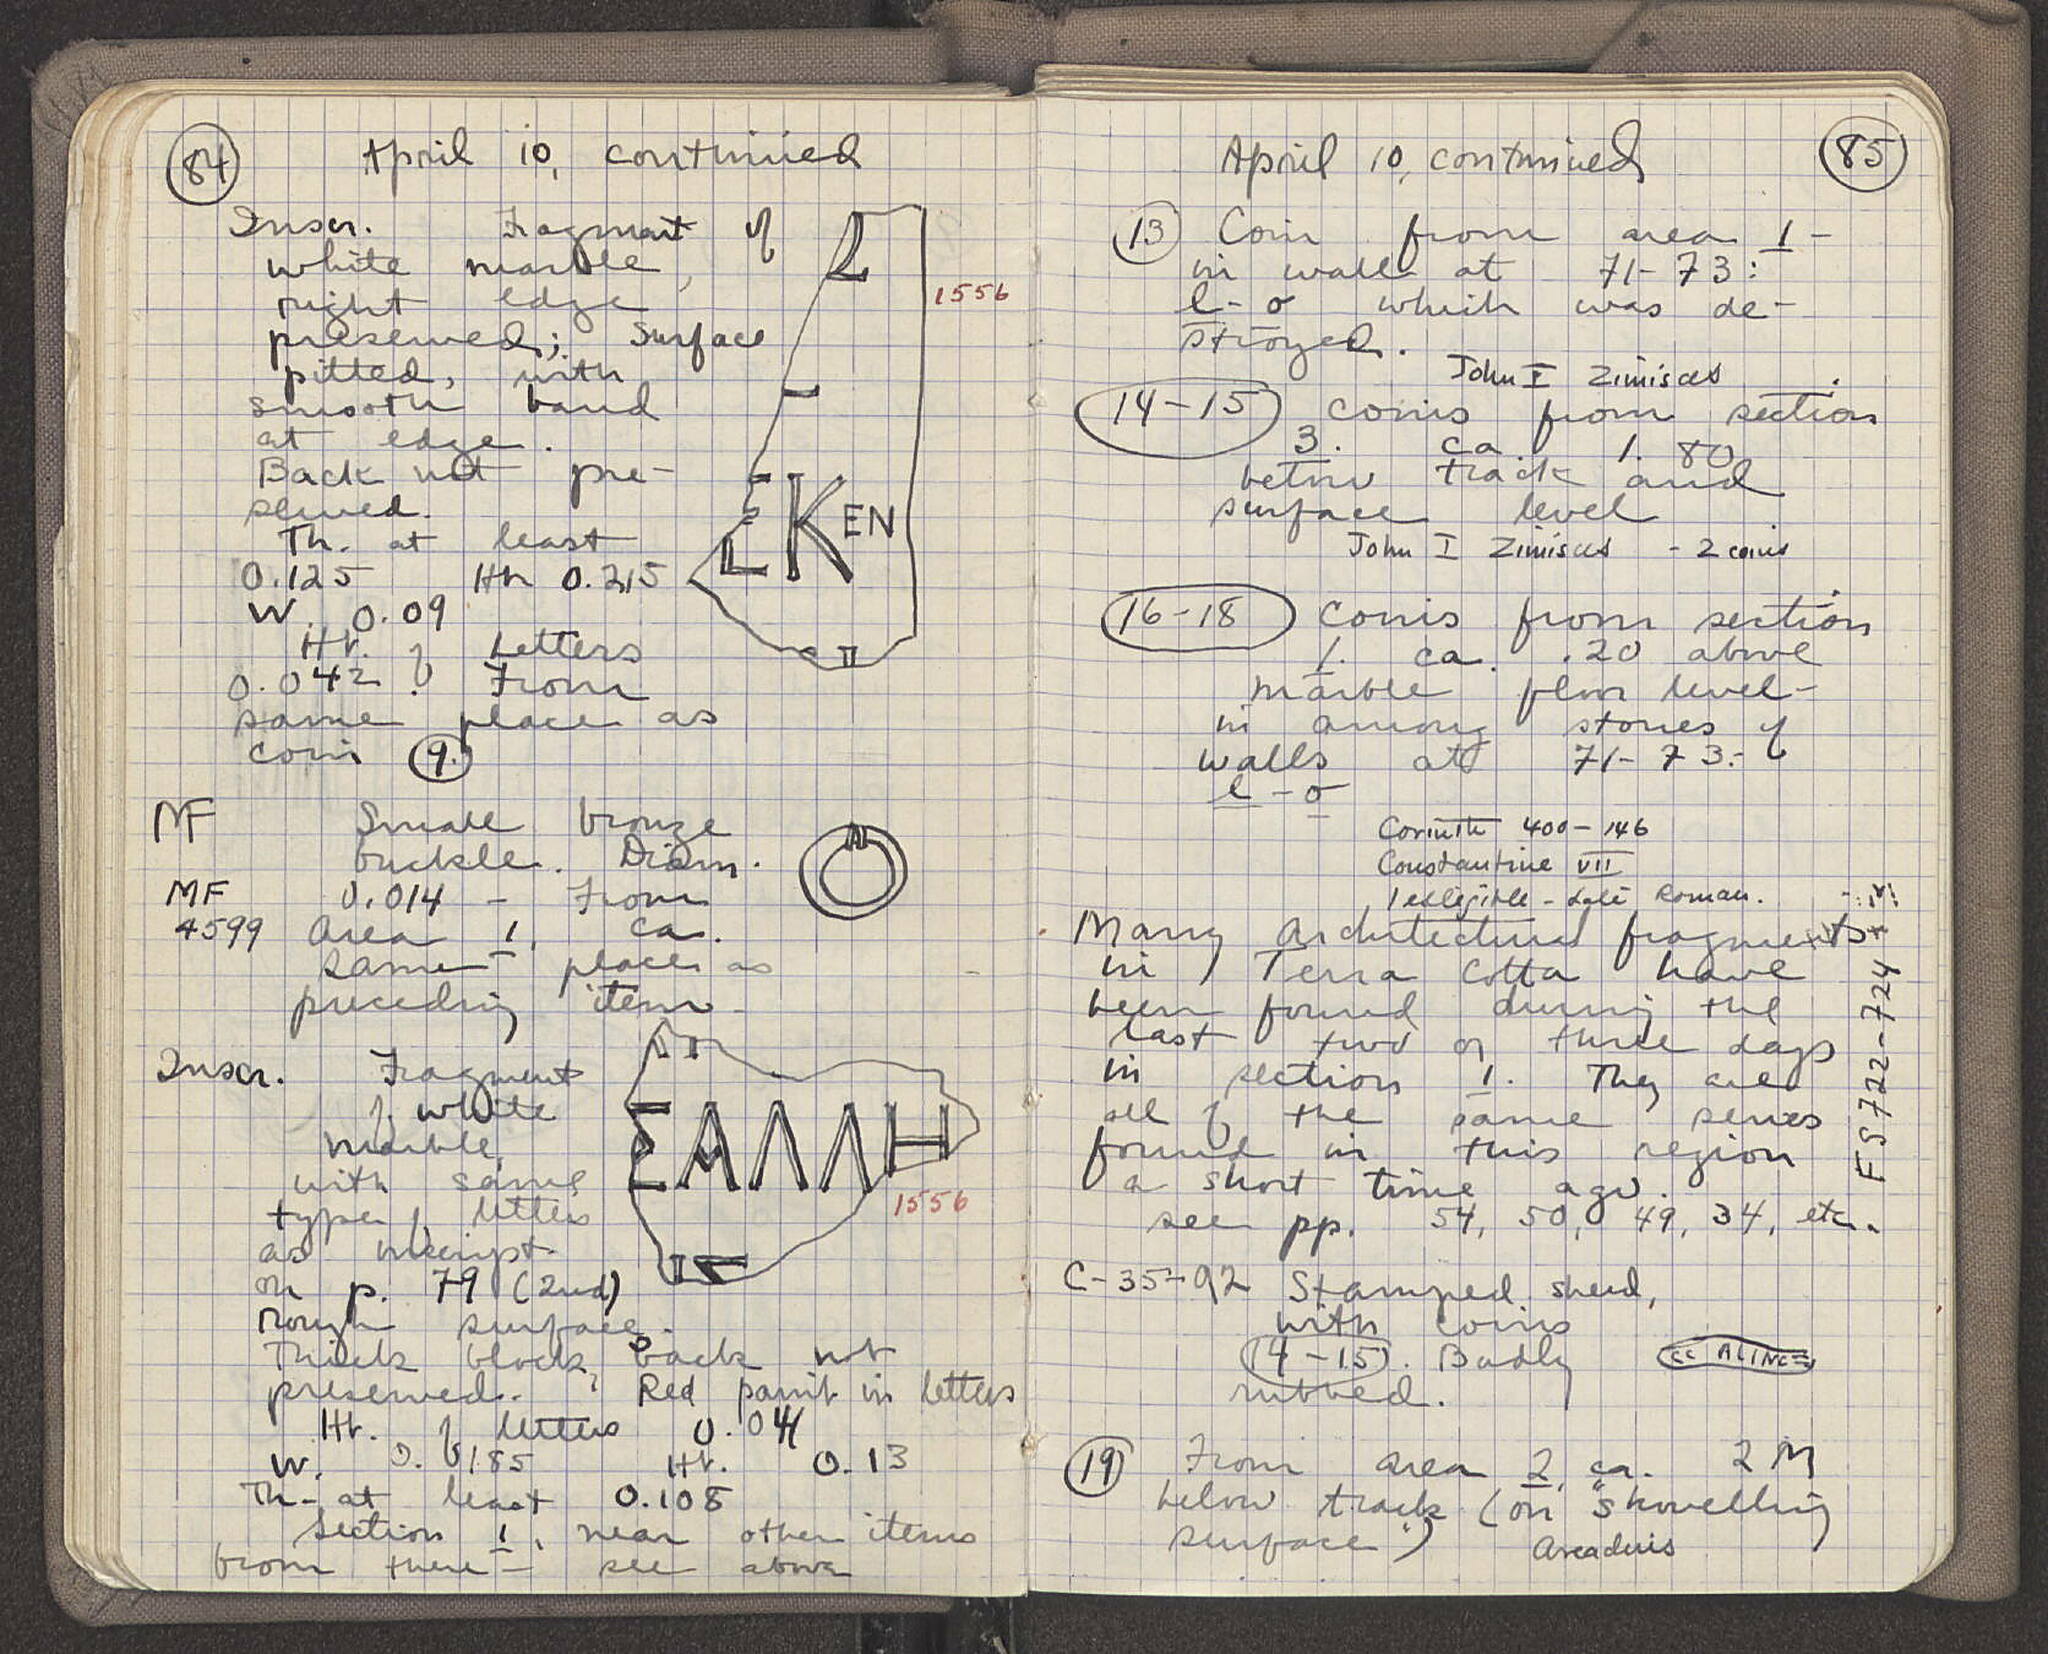 84
April 10, continued
Inscr. Fragment of
white marble,
right edge
preserved; surface
pitted, with
smooth band
at edge.
Back not pre-
served.
Th. at least
0.125 Ht 0.215
W. 0.09
Ht. of Letters
0.042. From
same place as
coin 9.
Σ
1556
ΣKEN
MF Small bronze
buckle. Diam.
MF 0.014 - From
4599 Area 1, ca.
same place as
preceding item
Inscr. Fragment
of white
marble,
with same
type of letters
as inscript.
on p. 79 (2nd)
rough surface.
Thick block, back not
preserved. Red paint in letters
Ht. of letters 0.041
W. 0.185 Ht. 0.13
Th. at least 0.108
Section 1, near other items
from there - see above
ΣΑΛΛΗ
1556
85
April 10, continued
13 Coin from area 1 -
in walls at 71-73:
l-o which was de-
stroyed.
John I Zimisces
14-15 coins from section
3. ca 1.80
below track and
surface level
John I Zimisces - 2 coins
16-18 coins from section
1. ca. .20 above
marble floor level -
in among stones of
walls at 71-73:
l-o
Corinth 400-146
Constantine VII
1 illegible - Late Roman.
Many architectural fragments
in Terra Cotta have
been found during the
last two or three days
in section 1. They are
all of the same series
found in this region
a short time ago.
see pp. 54, 50, 49, 34, etc.
FS 722-724
C-35-92 Stamped sherd,
with coins
14-15. Badly
rubbed.
19 From area 2, ca. 2 M
below track (on "shovelling
surface")
Arcadius